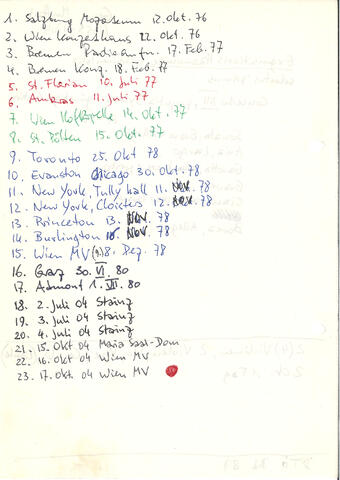 1. Salzburg Mozarteum 12. Okt. 76
2. Wien Konzerthaus 22. Okt. 76
3. Bremen Radioaufn. 17. Feb. 77
4. Bremen Konz. 18. Feb. 77
5. St. Florian 10. Juli 77
6. Ambras 11. Juli 77
7. Wien Hofkapelle 14. Okt. 77
8. St. Pölten 15. Okt. 77
9. Toronto 25. Okt 78
10. Evanston Chicago 30. Okt. 78
11. New York, Tully Hall 11. Nov. 78
12. New York, Cloisters 12. Nov. 78
13. Princeton 13. Nov. 78
14. Burlington Nov. 78
15. Wien MV 8. Dez. 78
16. Graz 30. VI. 80
17. Admont 1. VII. 80
18. 2. Juli 04 Stainz
19. 3. Juli 04 Stainz
20. 4. Juli 04 Stainz
21. 15. Okt 04 Maria Saal-Dom
22. 16. Okt 04 Wien MV
23. 17. Okt 04 Wien MV